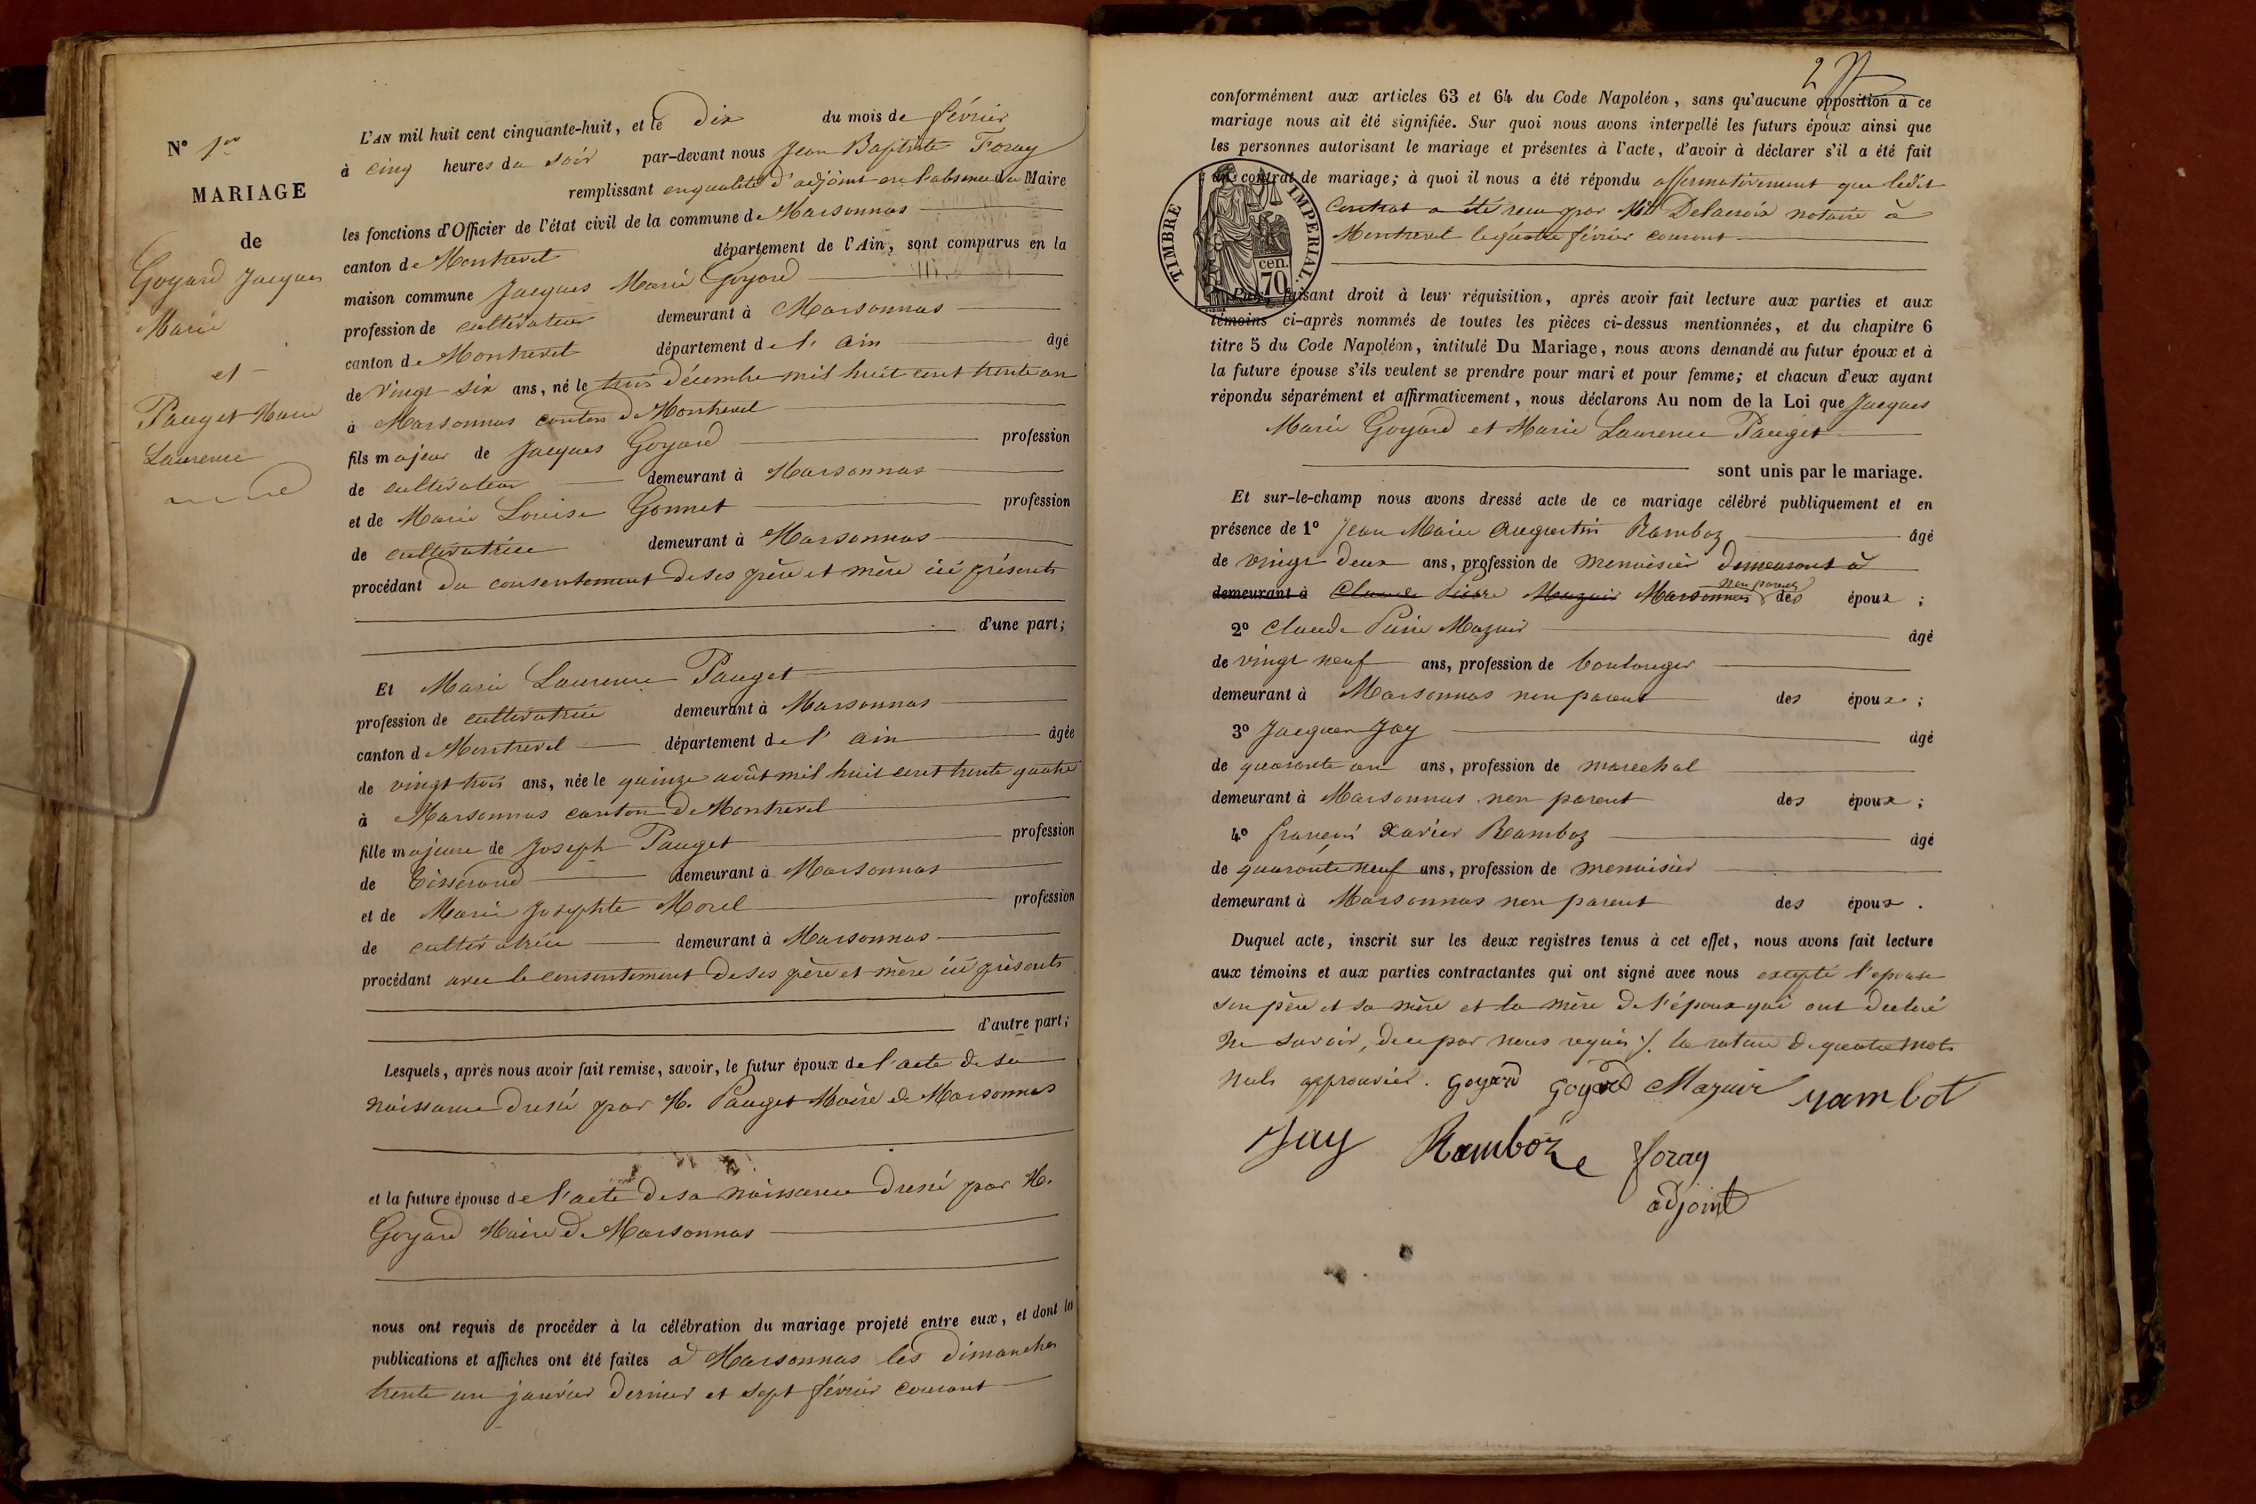 N° 1er
MARIAGE
de
Goyard Jacques
Marie
et
Pauget Marie
Laurence
L'AN mil huit cent cinquante-huit, et le dix du mois de février
à cinq heures du soir par-devant nous Jean Baptiste Foray
remplissant en qualité d'adjoint en l'absence du Maire
les fonctions d'Officier de l'état civil de la commune de Marsonnas
canton de Montrevel département de l'Ain, sont comparus en la
maison commune Jacques Marie Goyard
profession de cultivateur demeurant à Marsonnas
canton de Montrevel département de l'ain âgé
de vingt six ans, né le trois décembre mil huit cent trente un
à Marsonnas canton de Montrevel
fils majeur de Jacques Goyard profession
de cultivateur demeurant à Marsonnas
et de Marie Louise Gonnet profession
de cultivatrice demeurant à Marsonnas
procédant du consentement de ses père et mère ici présents
d'une part;
Et Marie Laurence Pauget
profession de cultivatrice demeurant à Marsonnas
canton de Montrevel département de l'ain âgée
de vingt trois ans, née le quinze août mil huit cent trente quatre
à Marsonnas canton de Montrevel
fille majeure de Joseph Pauget profession
de tisserand demeurant à Marsonnas
et de Marie Josephte Morel profession
de cultivatrice demeurant à Marsonnas
procédant avec le consentement de ses père et mère ici présents
d'autre part;
Lesquels, après nous avoir fait remise, savoir, le futur époux de l'acte de sa
naissance dressé par M. Pauget Maire de Marsonnas
et la future épouse de l'acte de sa naissance dressé par M.
Goyard Maire de Marsonnas
nous ont requis de procéder à la célébration du mariage projeté entre eux, et dont les
publications et affiches ont été faites à Marsonnas les dimanches
trente un janvier dernier et sept février courant
2
conformément aux articles 63 et 64 du Code Napoléon, sans qu'aucune opposition à ce
mariage nous ait été signifiée. Sur quoi nous avons interpellé les futurs époux ainsi que
les personnes autorisant le mariage et présentes à l'acte, d'avoir à déclarer s'il a été fait
un contrat de mariage; à quoi il nous a été répondu affirmativement que ledit
contrat a été reçu par Me Delacroix notaire à
Montrevel le quatre février courant
TIMBRE IMPERIAL
70 cen.
Puis, faisant droit à leur réquisition, après avoir fait lecture aux parties et aux
témoins ci-après nommés de toutes les pièces ci-dessus mentionnées, et du chapitre 6
titre 5 du Code Napoléon, intitulé Du Mariage, nous avons demandé au futur époux et à
la future épouse s'ils veulent se prendre pour mari et pour femme; et chacun d'eux ayant
répondu séparément et affirmativement, nous déclarons Au nom de la Loi que Jacques
Marie Goyard et Marie Laurence Pauget
sont unis par le mariage.
Et sur-le-champ nous avons dressé acte de ce mariage célébré publiquement et en
présence de 1° Jean Marie Augustin Ramboz âgé
de vingt deux ans, profession de menuisier demeurant à
non parent
demeurant à Claude Pierre Mazuir Marsonnas des époux;
2° Claude Pierre Mazuir âgé
de vingt neuf ans, profession de boulanger
demeurant à Marsonnas non parent des époux;
3° Jacques Jay âgé
de quarante un ans, profession de marechal
demeurant à Marsonnas non parent des époux;
4° françois Xavier Ramboz âgé
de quarante neuf ans, profession de menuisier
demeurant à Marsonnas non parent des époux.
Duquel acte, inscrit sur les deux registres tenus à cet effet, nous avons fait lecture
aux témoins et aux parties contractantes qui ont signé avec nous excepté l'epouse
son père et sa mère et la mère de l'époux qui ont declaré
ne savoir, de ce par nous requis ./. la rature de quatre mots
nuls approuvée. Goyard Goyard Mazuir rambot
Jay Ramboz foray
adjoint